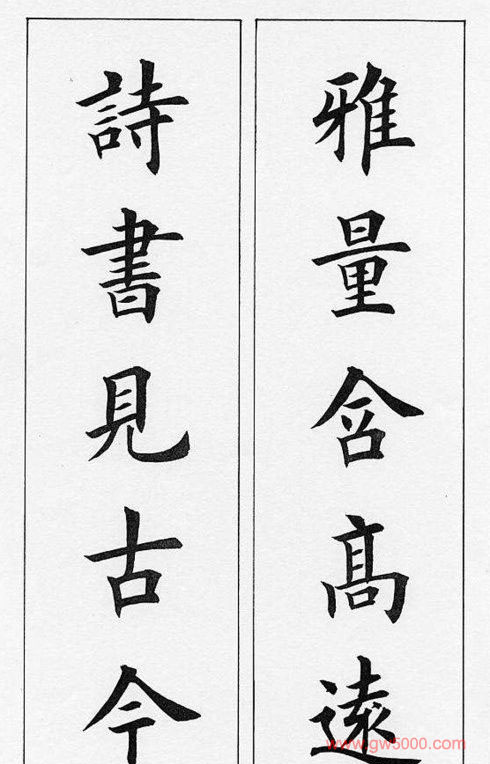 雅量含髙遠
詩書見古今
www.gw5000.com